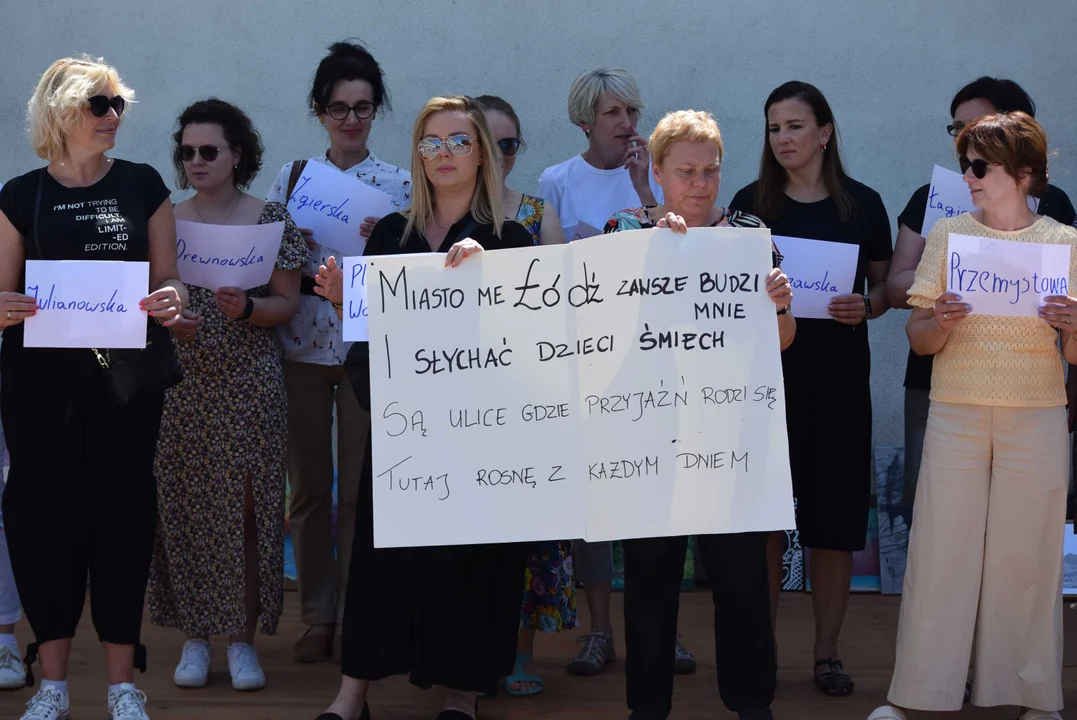 I'M NOT TRYING
TO BE
DIFFICULT.
I AM
LIMIT-
ED
EDITION.
Julianowska
Drewnowska
Zgierska
Pl
Wo
MIASTO ME ŁÓDŹ ZAWSZE BUDZI
MNIE
I SŁYCHAĆ DZIECI ŚMIECH
SĄ ULICE GDZIE PRZYJAŹŃ RODZI SIĘ
TUTAJ ROSNĘ Z KAŻDYM DNIEM
zawska
Łagie
Przemysłowa